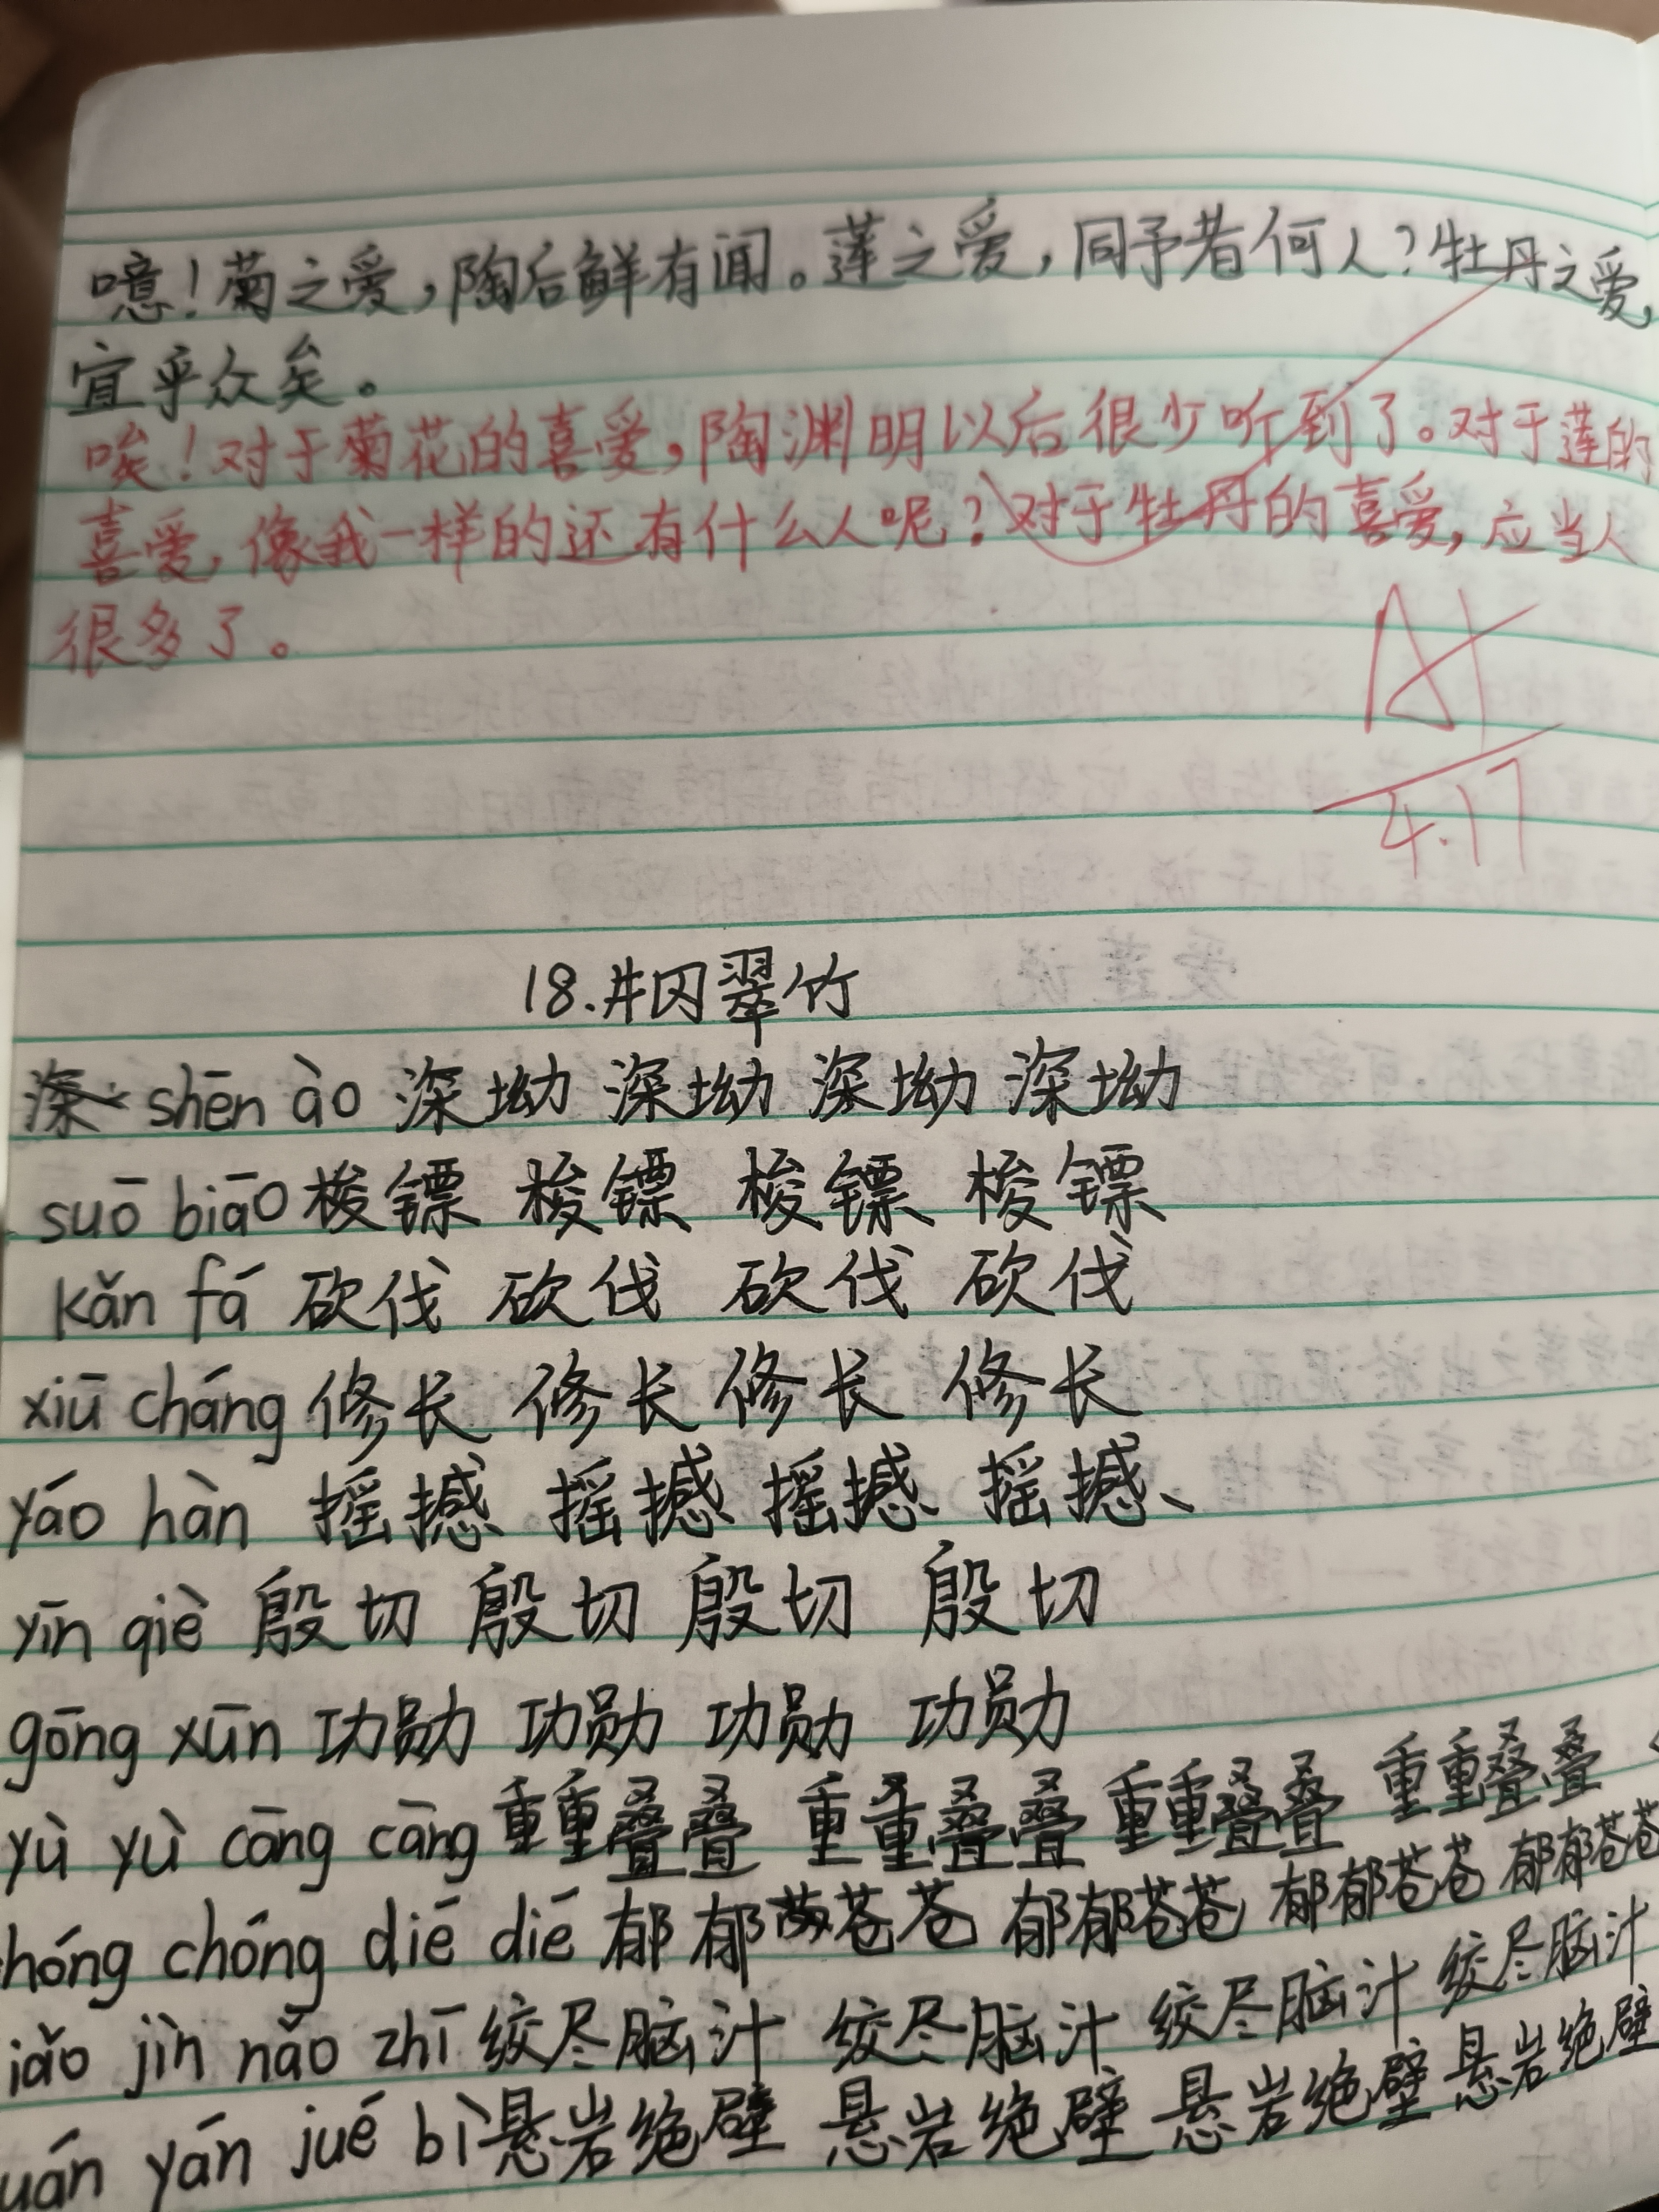 噫！菊之爱，陶后鲜有闻。莲之爱，同予者何人？牡丹之爱，
宜乎众矣。
唉！对于菊花的喜爱，陶渊明以后很少听到了。对于莲的
喜爱，像我一样的还有什么人呢？对于牡丹的喜爱，应当人
很多了。
A+
4.17
18.井冈翠竹
shēn ào 深坳 深坳 深坳 深坳
suō biāo 梭镖 梭镖 梭镖 梭镖
kǎn fá 砍伐 砍伐 砍伐 砍伐
xiū cháng 修长 修长 修长 修长
yáo hàn 摇撼 摇撼 摇撼 摇撼、
yīn qiè 殷切 殷切 殷切 殷切
gōng xūn 功勋 功勋 功勋 功勋
yù yù cāng cāng 重重叠叠 重重叠叠 重重叠叠 重重叠叠
hóng chóng dié dié 郁郁苍苍 郁郁苍苍 郁郁苍苍 郁郁苍苍
iǎo jìn nǎo zhī 绞尽脑汁 绞尽脑汁 绞尽脑汁 绞尽脑汁
uán yán jué bì 悬岩绝壁 悬岩绝壁 悬岩绝壁 悬岩绝壁